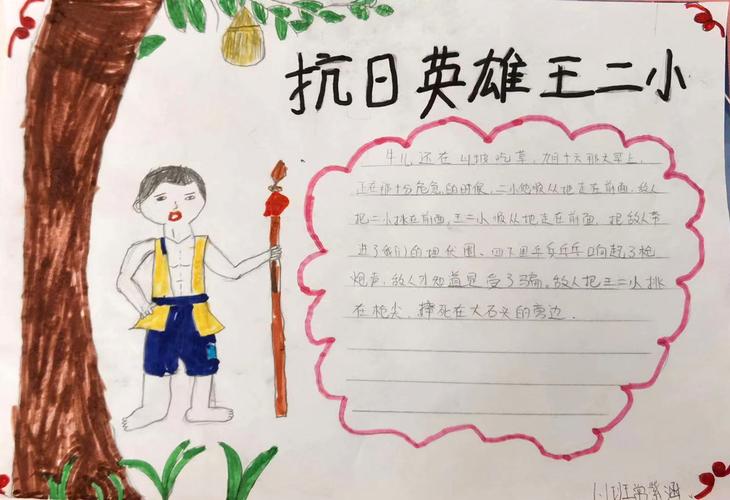 抗日英雄王二小
牛儿还在山坡吃草，九月十六那天早上，
正在那十分危急的时候，二小他顺从地走在前面，敌人
把二小挑在前面，王二小顺从地走在前面，把敌人带
进了我们的埋伏圈。四下里乒乒乓乓响起了枪
炮声，敌人才知道是受了骗，敌人把王二小挑
在枪尖，摔死在大石头的旁边。
1.1班